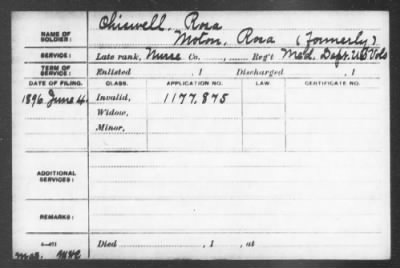 NAME OF SOLDIER: Chiswell, Rosa
Moton, Rosa (Formerly)
SERVICE: Late rank, Nurse Co. , Reg't Med. Dept. US Vols
TERM OF SERVICE: Enlisted , 1 Discharged , 1
DATE OF FILING. CLASS. APPLICATION NO. LAW. CERTIFICATE NO.
1896 June 4 Invalid, 1177.875
Widow,
Minor,
ADDITIONAL SERVICES:
REMARKS:
Died , 1 , at